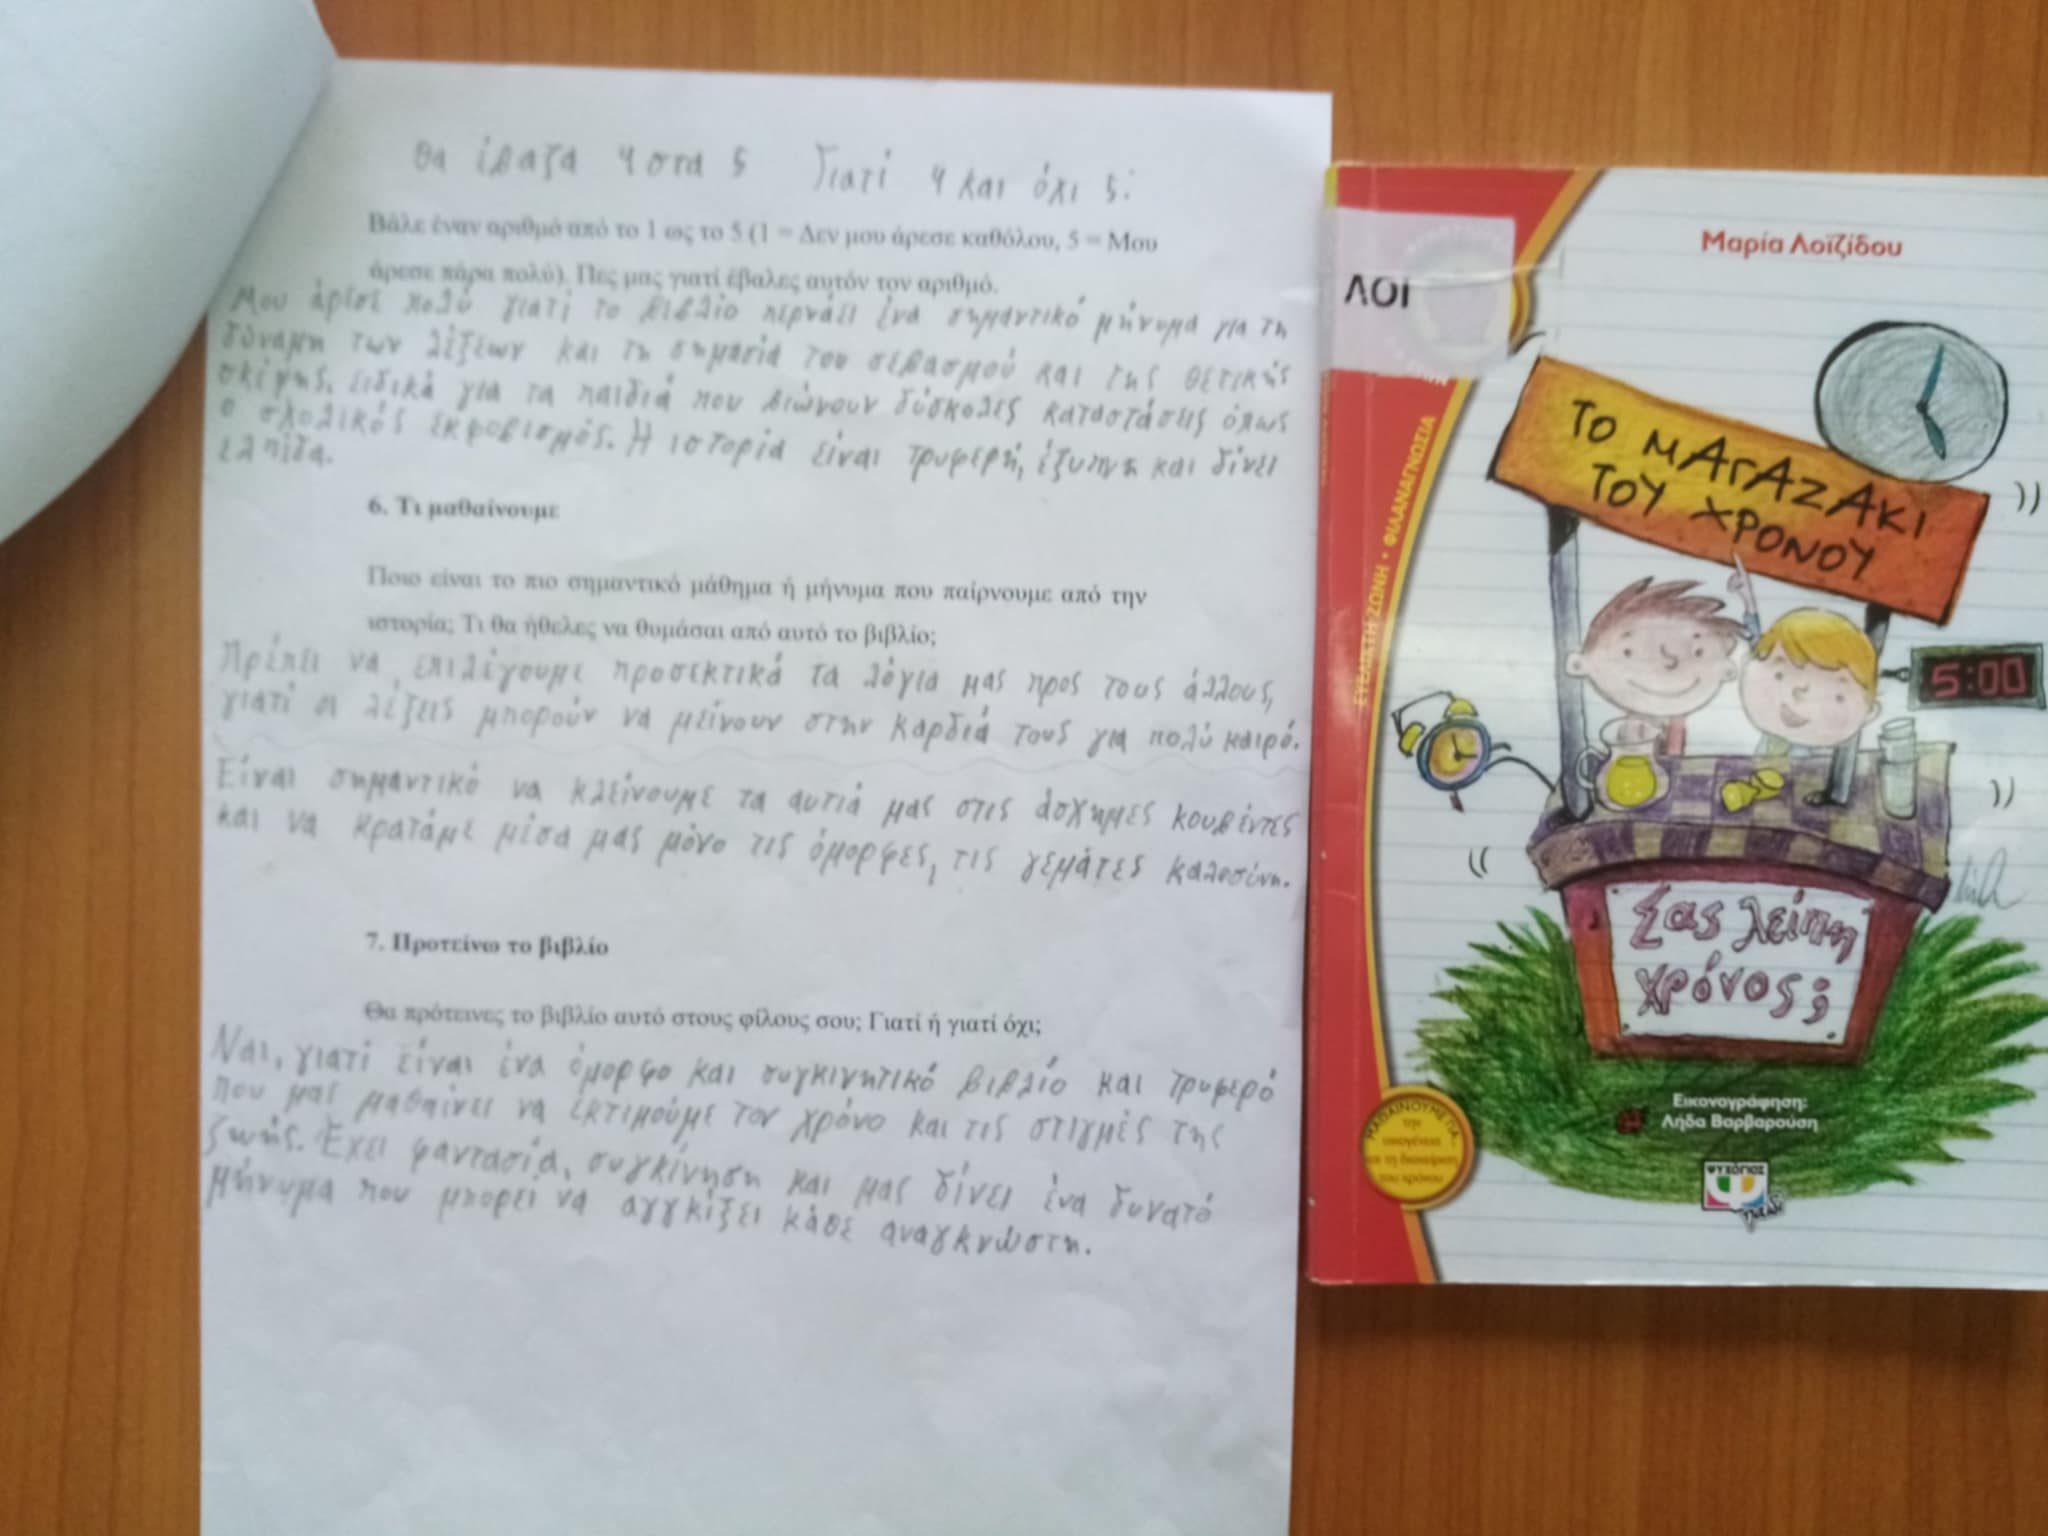 Θα έβαζα 4 στα 5 Γιατί 4 και όχι 5:
Βάλε έναν αριθμό από το 1 ως το 5 (1 = Δεν μου άρεσε καθόλου, 5 = Μου
άρεσε πάρα πολύ). Πες μας γιατί έβαλες αυτόν τον αριθμό.
Μου άρεσε πολύ γιατί το βιβλίο περνάει ένα σημαντικό μήνυμα για τη
δύναμη των λέξεων και τη σημασία του σεβασμού και της θετικής
σκέψης. ειδικά για τα παιδιά που βιώνουν δύσκολες καταστάσεις όπως
ο σχολικός εκφοβισμός. Η ιστορία είναι τρυφερή, έξυπνη και δίνει
ελπίδα.
6. Τι μαθαίνουμε
Ποιο είναι το πιο σημαντικό μάθημα ή μήνυμα που παίρνουμε από την
ιστορία; Τι θα ήθελες να θυμάσαι από αυτό το βιβλίο;
Πρέπει να επιλέγουμε προσεκτικά τα λόγια μας προς τους άλλους,
γιατί οι λέξεις μπορούν να μείνουν στην καρδιά τους για πολύ καιρό.
Είναι σημαντικό να κλείνουμε τα αυτιά μας στις άσχημες κουβέντες
και να κρατάμε μέσα μας μόνο τις όμορφες, τις γεμάτες καλοσύνη.
7. Προτείνω το βιβλίο
Θα πρότεινες το βιβλίο αυτό στους φίλους σου; Γιατί ή γιατί όχι;
Ναι, γιατί είναι ένα όμορφο και συγκινητικό βιβλίο και τρυφερό
που μας μαθαίνει να εκτιμούμε τον χρόνο και τις στιγμές της
ζωής. Έχει φαντασία, συγκίνηση και μας δίνει ένα δυνατό
μήνυμα που μπορεί να αγγκίξει κάθε αναγκνώστη.
Μαρία Λοϊζίδου
ΛΟΙ
ΤΟ ΜΑΓΑΖΑΚΙ
ΤΟΥ ΧΡΟΝΟΥ
5:00
Σας λείπη
χρόνος;
ΕΥΕΛΙΚΤΗ ΖΩΝΗ • ΦΙΛΑΝΑΓΝΩΣΙΑ
Εικονογράφηση:
Λήδα Βαρβαρούση
ΜΑΘΑΙΝΟΥΜΕ ΓΙΑ
την
οικογένεια
και τη διαχείριση
του χρόνου
ΨΥΧΟΓΙΟΣ
παιδί